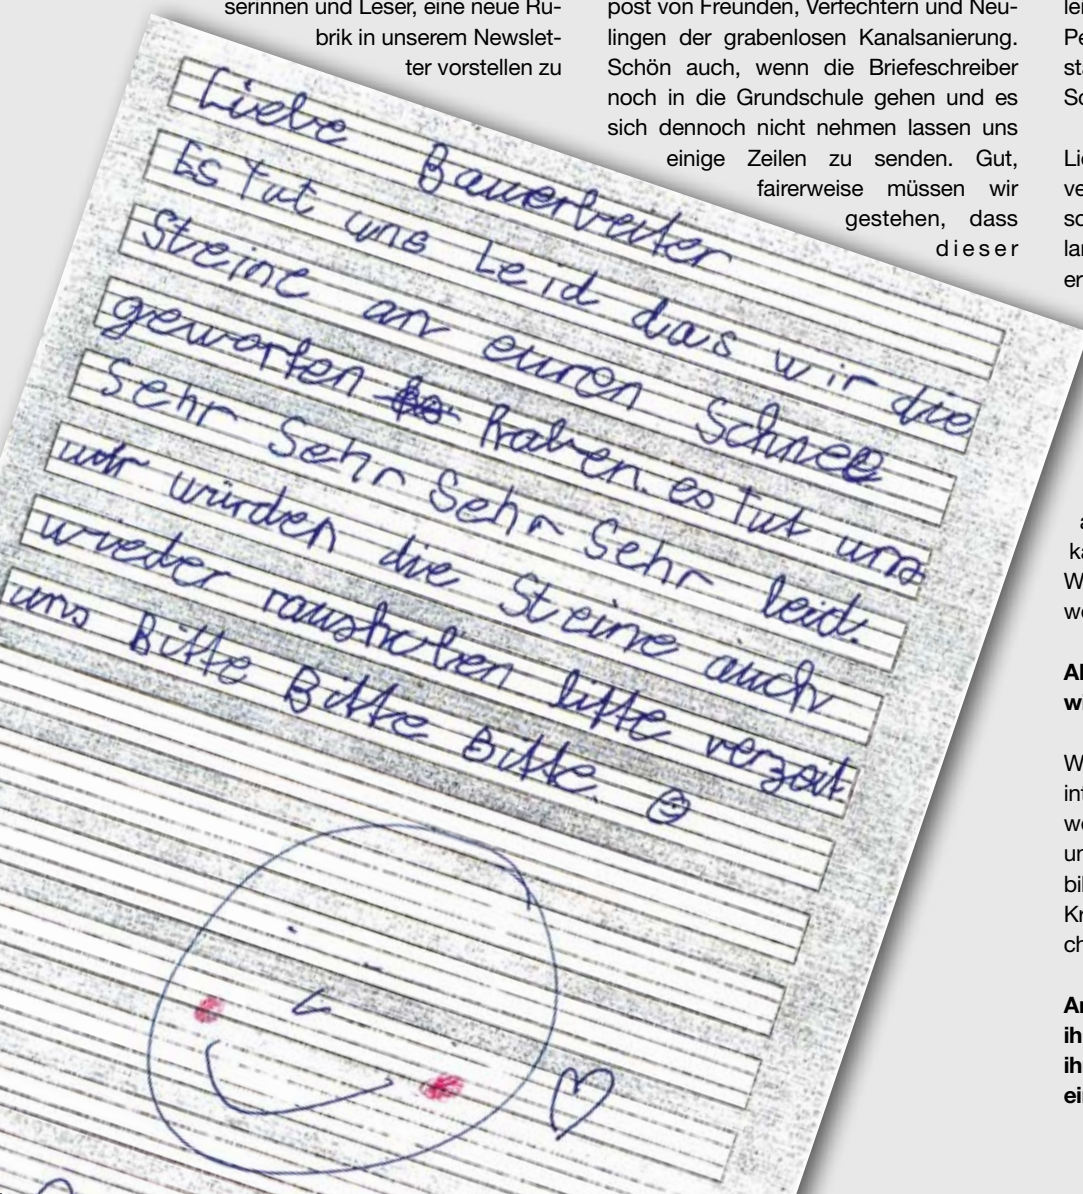 serinnen und Leser, eine neue Ru-
brik in unserem Newslet-
ter vorstellen zu
post von Freunden, Verfechtern und Neu-
lingen der grabenlosen Kanalsanierung.
Schön auch, wenn die Briefeschreiber
noch in die Grundschule gehen und es
sich dennoch nicht nehmen lassen uns
einige Zeilen zu senden. Gut,
fairerweise müssen wir
gestehen, dass
dieser
Liebe Bauerbeiter
Es tut uns Leid das wir die
Steine an euren Schnee
geworfen haben. es tut uns
Sehr Sehr Sehr Sehr leid.
wir würden die Steine auch
wieder rausholen bitte verzeit
uns Bitte Bitte Bitte.